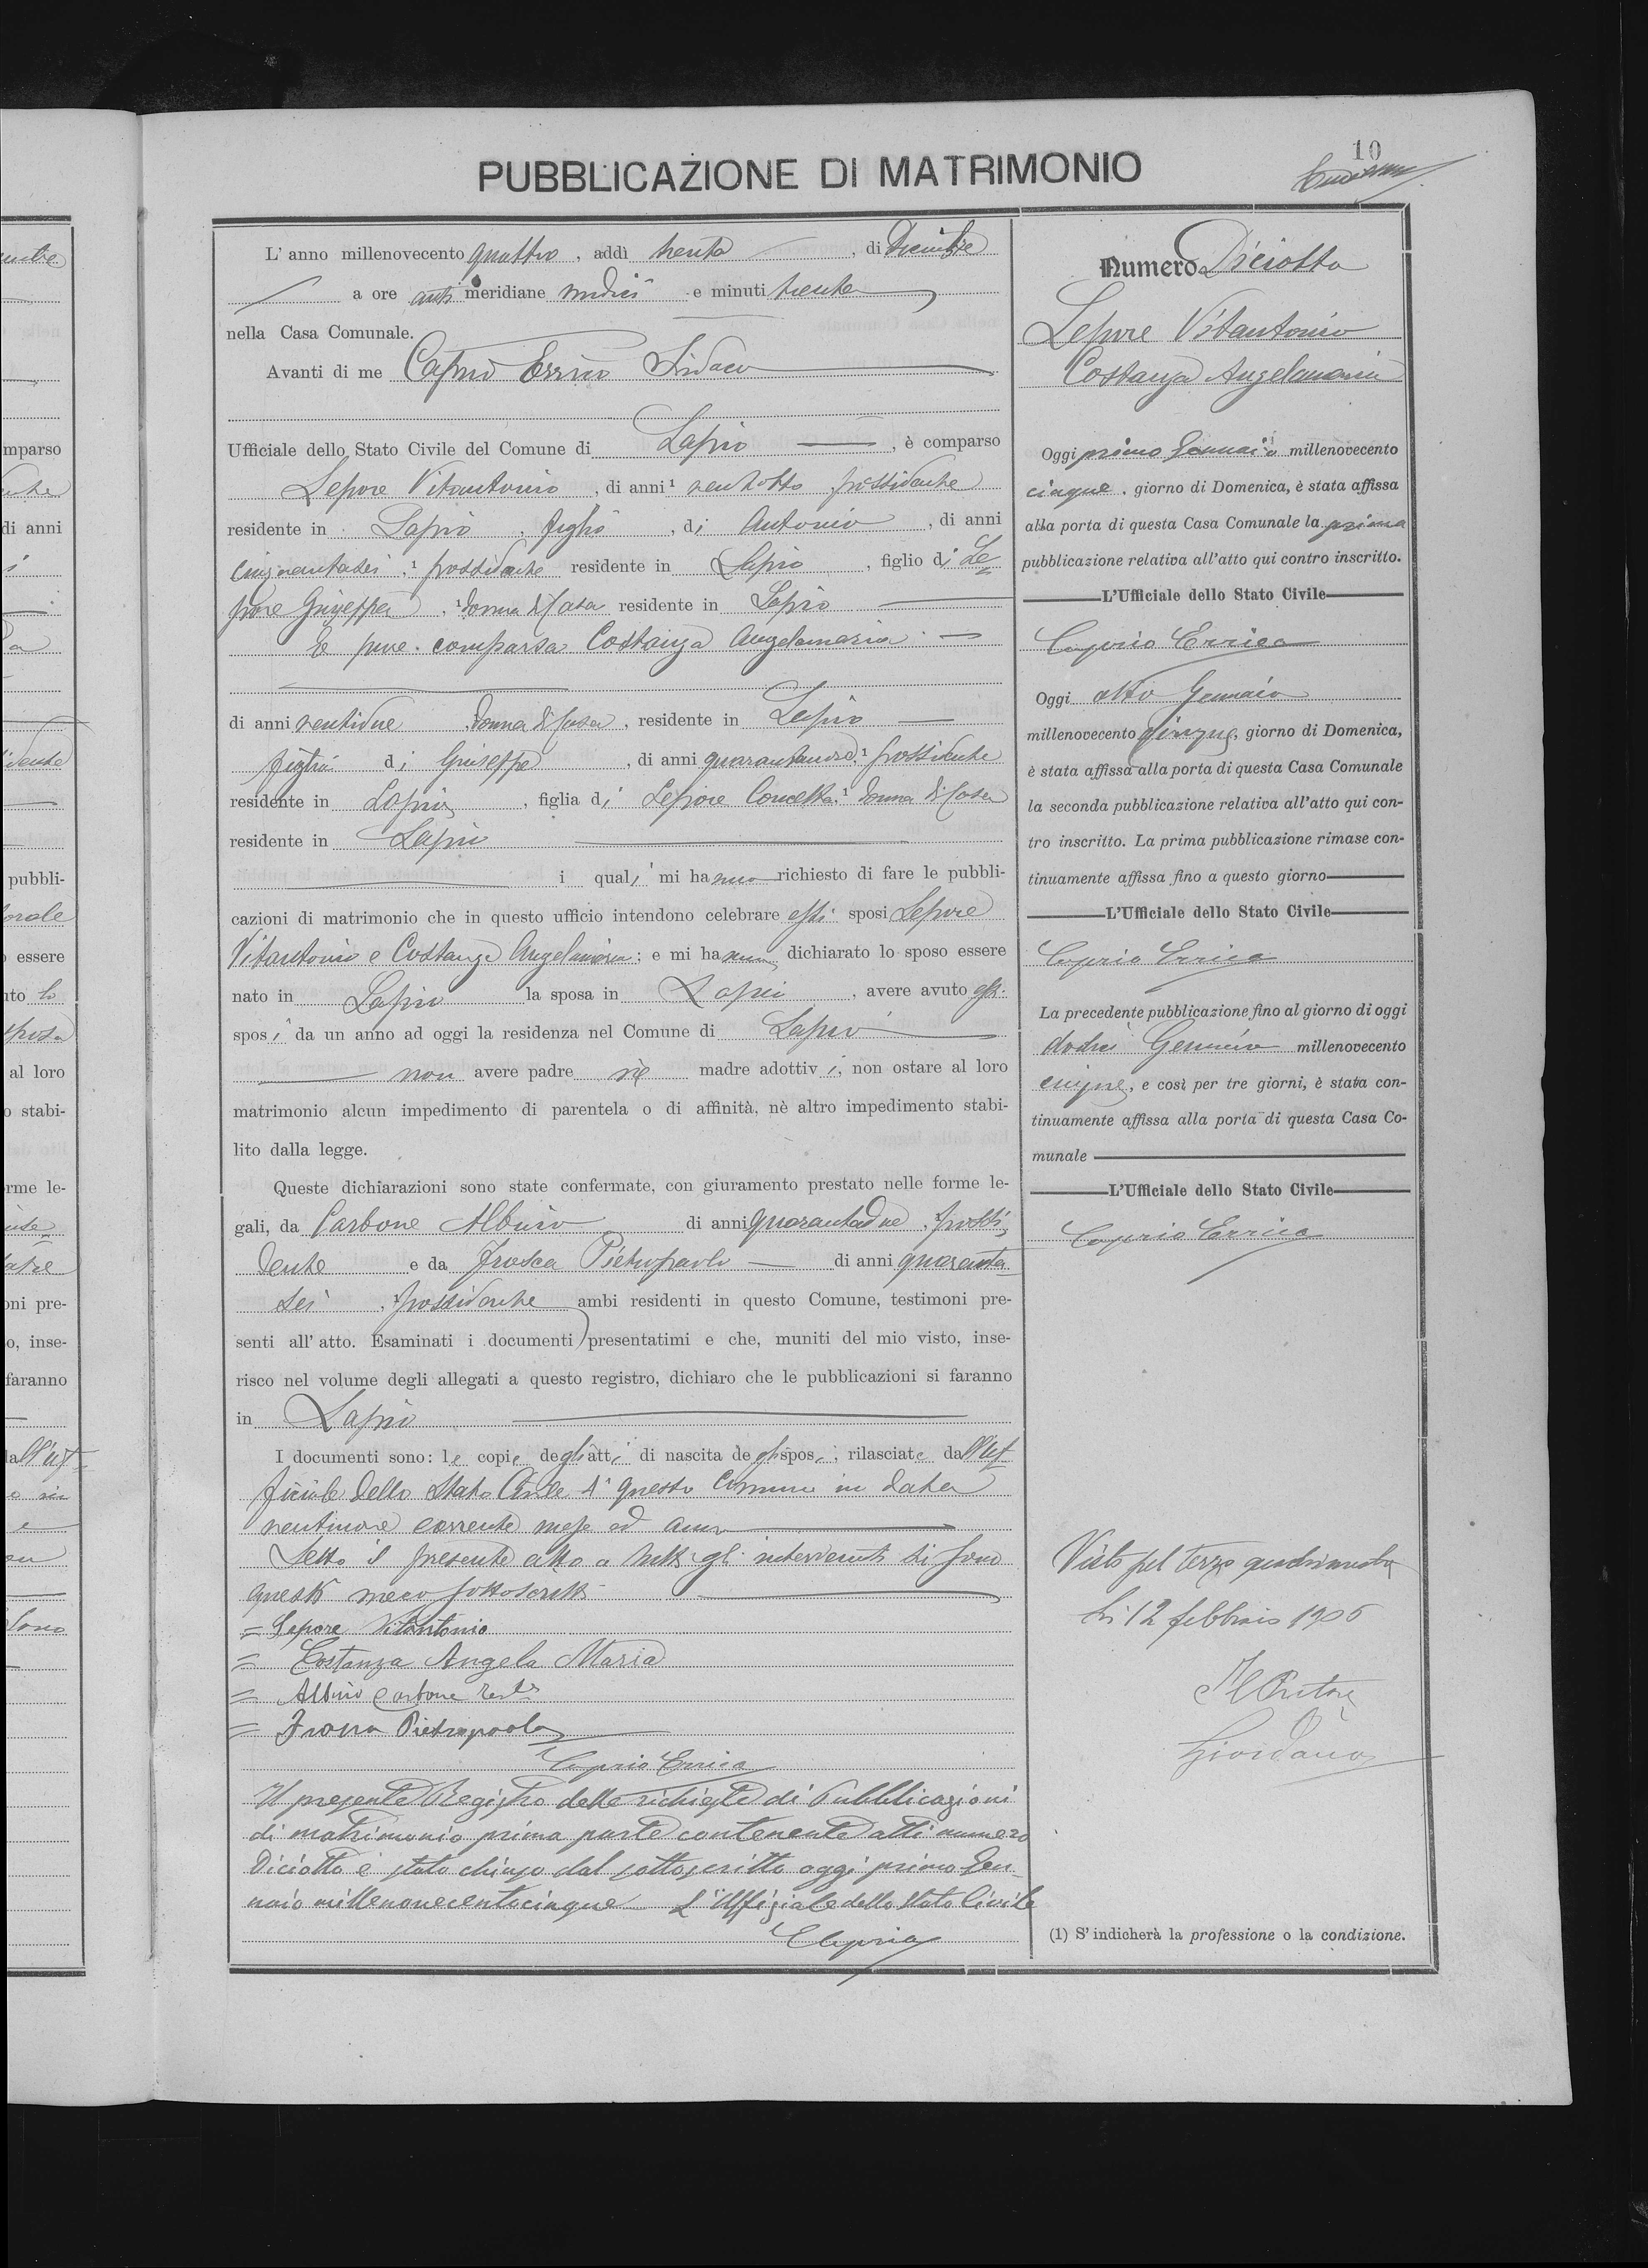 10
PUBBLICAZIONE DI MATRIMONIO
L'anno millenovecento quattro, addì trenta, di Dicembre
a ore anti meridiane undici e minuti trenta
nella Casa Comunale.
Avanti di me Caprio Errico Sindaco
Ufficiale dello Stato Civile del Comune di Lapio, è comparso
Lepore Vitantonio, di anni 1 ventotto possidente
residente in Lapio, figlio, di Antonio, di anni
cinquantasei, 1 possidente residente in Lapio, figlio di Le=
pore Giuseppa, 1 donna di Casa residente in Lapio
È pure comparsa Costanza Angelamaria
di anni ventidue donna di Casa, residente in Lapio
figlia di Giuseppe, di anni 1 possidente
residente in Lapio, figlia di Lepore Concetta, 1 donna di Casa
residente in Lapio
i quali mi hanno richiesto di fare le pubbli-
cazioni di matrimonio che in questo ufficio intendono celebrare essi sposi Lepore
Vitantonio e Costanza Angelamaria; e mi hanno dichiarato lo sposo essere
nato in Lapio la sposa in Lapio, avere avuto essi
sposi da un anno ad oggi la residenza nel Comune di Lapio
non avere padre nè madre adottivi, non ostare al loro
matrimonio alcun impedimento di parentela o di affinità, nè altro impedimento stabi-
lito dalla legge.
Queste dichiarazioni sono state confermate, con giuramento prestato nelle forme le-
gali, da Carbone Albino di anni quarantadue, possi=
dente e da Frosca Pietropaolo di anni quaranta=
sei, possidente ambi residenti in questo Comune, testimoni pre-
senti all'atto. Esaminati i documenti presentatimi e che, muniti del mio visto, inse-
risco nel volume degli allegati a questo registro, dichiaro che le pubblicazioni si faranno
in Lapio
I documenti sono: le copie degli atti di nascita degli sposi, rilasciate dall'Uf=
ficiale dello Stato Civile di questo Comune in data
ventinove corrente mese ed anno
Letto il presente atto a tutti gli intervenuti si sono
questi meco sottoscritti
= Lepore Vitantonio
= Costanza Angela Maria
= Albino Carbone
= Pietropaolo
Caprio Errico
Il presente Registro delle richieste di Pubblicazioni
di matrimonio prima parte contenente atti numero
Diciotto è stato chiuso dal sottoscritto oggi primo Gen-
naio millenovecentocinque L'Uffiziale dello Stato Civile
ECaprio
Numero Diciotto
Lepore Vitantonio
Costanza Angelamaria
Oggi primo Gennaio millenovecento
cinque, giorno di Domenica, è stata affissa
alla porta di questa Casa Comunale la prima
pubblicazione relativa all'atto qui contro inscritto.
L'Ufficiale dello Stato Civile
Caprio Errico
Oggi otto Gennaio
millenovecento cinque, giorno di Domenica,
è stata affissa alla porta di questa Casa Comunale
la seconda pubblicazione relativa all'atto qui con-
tro inscritto. La prima pubblicazione rimase con-
tinuamente affissa fino a questo giorno
L'Ufficiale dello Stato Civile
Caprio Errico
La precedente pubblicazione fino al giorno di oggi
dodici Gennaio millenovecento
cinque, e così per tre giorni, è stata con-
tinuamente affissa alla porta di questa Casa Co-
munale
L'Ufficiale dello Stato Civile
Caprio Errico
Visto pel terzo quadrimestre
Li 12 febbraio 1905
Il Pretore
Giordano
(1) S'indicherà la professione o la condizione.